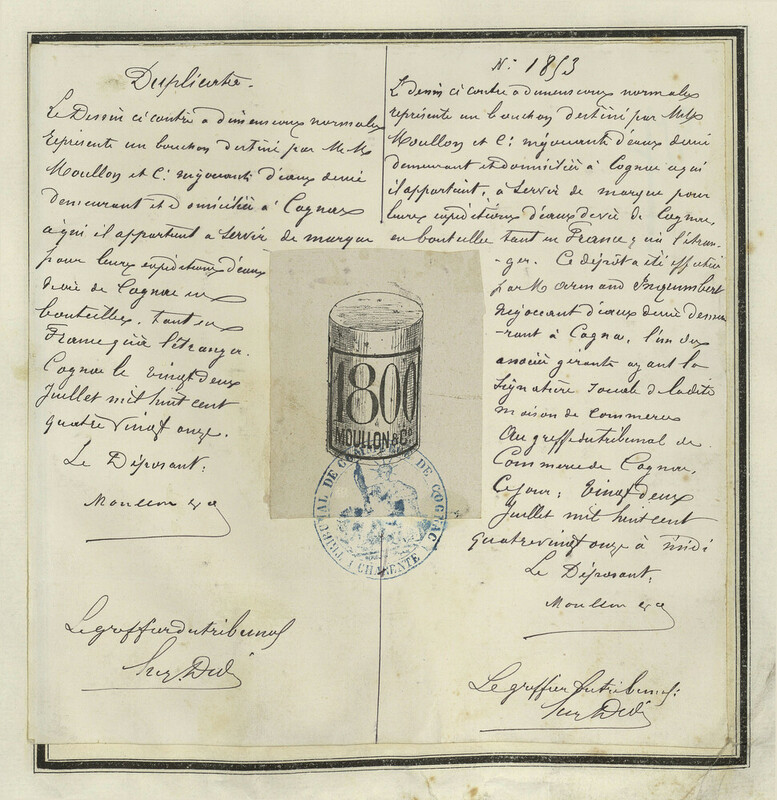 Duplicata.
Le Dessin ci contre à dimensions normales
représente un bouchon destiné par M.M.
Moullon et Cie négociants d'eaux devie
demeurant et domiciliés à Cognac
à qui il appartient a servir de marque
pour leurs expéditions d'eaux
devie de Cognac en
bouteilles, tant en
France qu'à l'étranger.
Cognac le vingt deux
Juillet mil huit cent
quatre vingt onze.
Le Déposant:
Moullon & Co
Le greffier du tribunal
No 1853
Le dessin ci contre à dimensions normales
représente un bouchon destiné par M.M.
Moullon et Cie négociants d'eaux devie
demeurant et domiciliés à Cognac à qui
il appartient, à servir de marque pour
leurs expéditions d'eaux devie de Cognac,
en bouteilles tant en France qu'à l'étran-
-ger. Ce dépôt a été effectué
par M. Armand
négociant d'eaux devie demeu-
-rant à Cognac, l'un des
associés gérants ayant la
signature sociale de ladite
maison de commerce
Au greffe du tribunal de
Commerce de Cognac,
Ce jour: Vingt deux
Juillet mil huit cent
quatre vingt onze à midi
Le Déposant:
Moullon & Co
Le greffier du tribunal:
1800
MOULLON & Co
TRIBUNAL DE COMMERCE DE COGNAC
CHARENTE